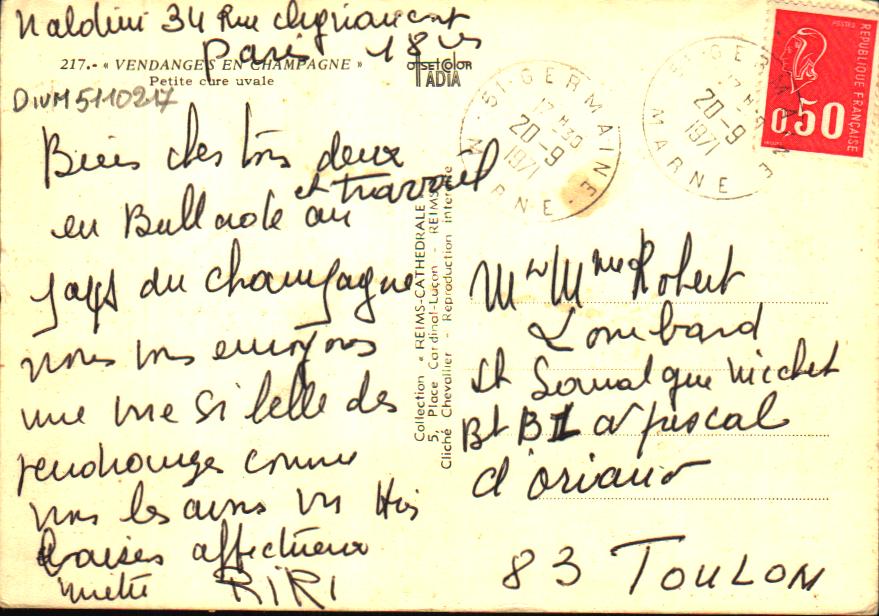 Naldini 34 Rue clignancourt
Paris 18
217.- « VENDANGES EN CHAMPAGNE »
Petite cure uvale
OFFSET COLOR
IADIA
DIVM5110217
Biens chers tous deux
et travail
en Ballade au
pays du champagne
nous vous envoyons
une vue si belle des
vendanges comme
nous les avons vu
baises affectueux
RIRI
Collection « REIMS-CATHEDRALE
5, Place Cardinal-Luçon - REIMS
Cliché Chevallier - Reproduction interdite
ST GERMAINE
17 H 30
20-9
1971
MARNE
ST GERMAINE
17 H 30
20-9
1971
MARNE
POSTES
REPUBLIQUE FRANÇAISE
0,50
Mr Mme Robert
Lombard
Bt B1 Av
83 TOULON